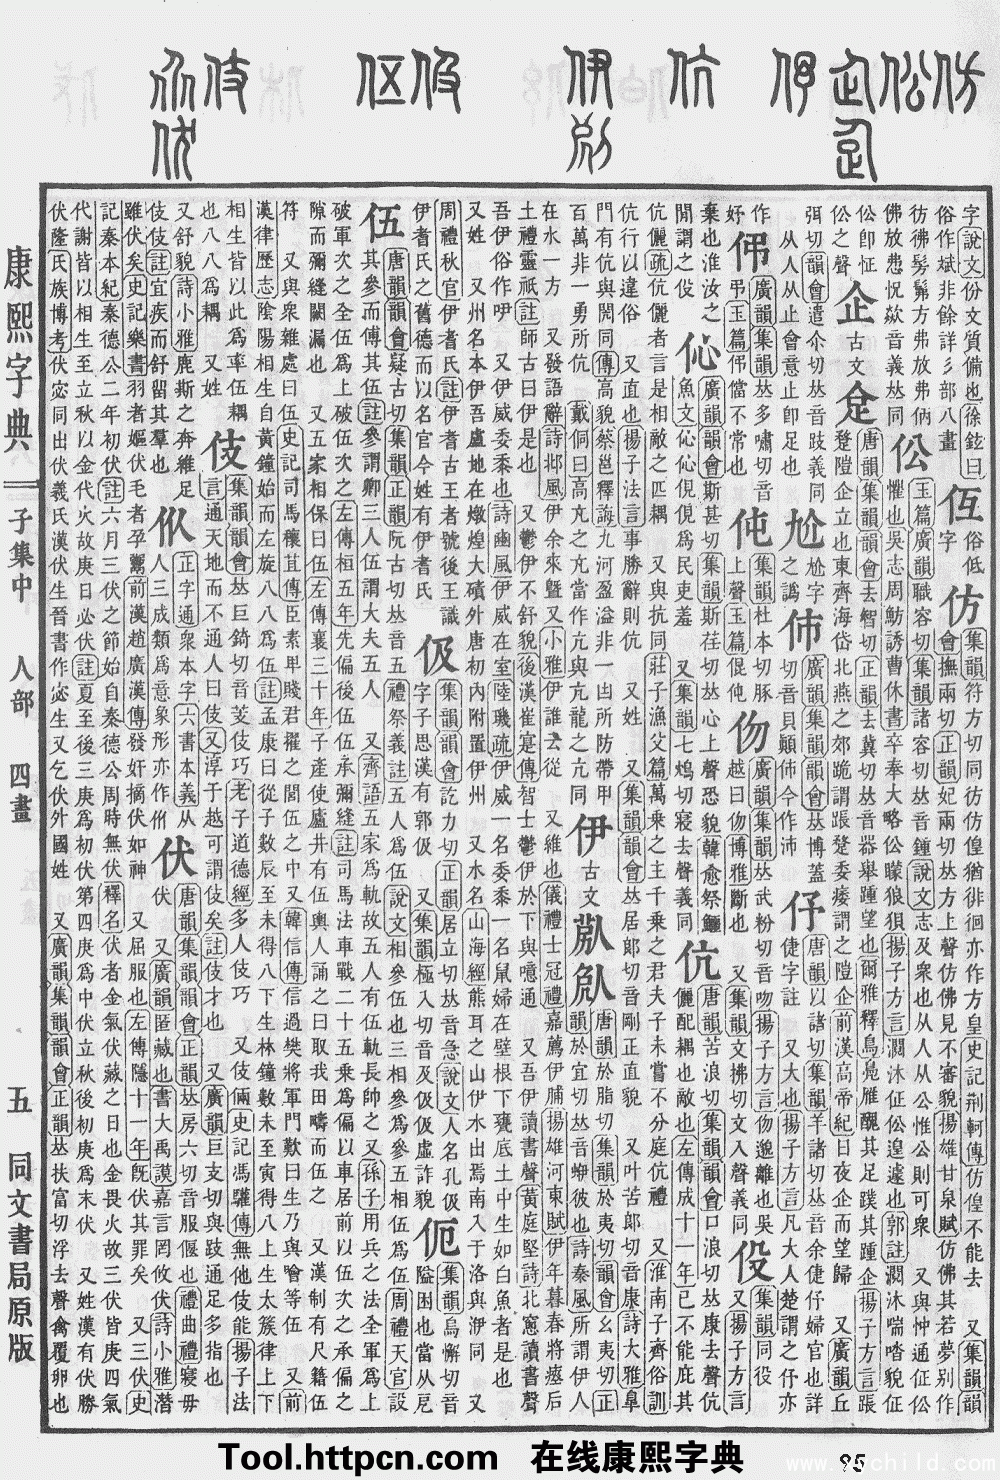 字說文份文質備也徐鉉曰
俗作斌非餘詳彡部八畫
仾
俗低字
仿
集韻符方切同彷仿偟猶徘徊亦作方皇史記荆軻傳仿偟不能去 又集韻韻
會撫兩切正韻妃兩切𠀤方上聲仿佛見不審貌揚雄甘泉賦仿佛其若夢別作
彷彿髣髴方弗放
佛放怳欻音義𠀤同
伀
玉篇廣韻職容切集韻諸容切𠀤音鍾說文志及衆也从人从公惟公則可衆 又與忪通怔伀
懼也吳志周魴誘曹休書卒奉大略伀矇狼狽揚子方言㵎沐怔伀遑遽也郭註㵎沐喘㗭貌怔
伀卽怔
伀之聲
企
古文
𠈮
唐韻集韻韻會去智切正韻去冀切𠀤音器舉踵望也爾雅釋鳥鳧雁醜其足蹼其踵企揚子方言
登隑企立也東齊海岱北燕之郊跪謂跟登委痿謂之隑企前漢高帝紀日夜企而望歸 又廣韻丘
弭切韻會遣尒切𠀤音跂義同
从人从止會意止卽足也
尬字
之譌
伂
廣韻集韻韻會𠀤博蓋
切音貝顚伂今作沛
伃
唐韻以諸切集韻羊諸切𠀤音余倢伃婦官也詳
倢字註 又大也揚子方言凡大人楚謂之伃亦
作
妤
弔
廣韻集韻𠀤多嘯切音
弔玉篇當不常也
伅
集韻杜本切豚
上聲玉篇倱伅
伆
廣韻集韻𠀤武粉切音吻揚子方言伆邈離也吳
越曰伆博雅斷也 又集韻文拂切文入聲義同
伇
集韻同役
又揚子方言
棄也淮汝之
閒謂之伇
伈
廣韻韻會斯甚切集韻斯荏切𠀤心上聲恐貌韓愈祭鱷
魚文伈伈俔俔爲民吏羞 又集韻七鴆切寢去聲義同
伉
唐韻苦浪切集韻韻會口浪切𠀤康去聲伉
儷配耦也敵也左傳成十一年已不能庇其
伉儷疏伉儷者言是相敵之匹耦 又與抗同莊子漁父篇萬乗之主千乗之君夫子未嘗不分庭伉禮 又淮南子齊俗訓
伉行以違俗 又直也揚子法言事勝辭則伉 又姓 又集韻韻會𠀤居郎切音剛正直貌 又叶苦郎切音康詩大雅皐
門有伉與閌同傳高貌蔡邕釋誨九河盈溢非一凷所防帶甲
百萬非一勇所伉 戴侗曰高亢之亢當作亢與亢龍之亢同
伊
古文
唐韻於脂切集韻於夷切韻會幺夷切正
韻於宜切𠀤音蛜彼也詩秦風所謂伊人
在水一方 又發語辭詩邶風伊余來墍又小雅伊誰云從 又維也儀禮士冠禮嘉薦伊脯揚雄河東賦伊年暮春將瘞后
土禮靈祇註師古曰伊是也 又鬱伊不舒貌後漢崔寔傳智士鬱伊於下與噫通 又吾伊讀書聲黃庭堅詩北窻讀書聲
吾伊俗作咿 又伊威委黍也詩豳風伊威在室陸璣疏伊威一名委黍一名鼠婦在壁根下甕底土中生如白魚者是也
又姓 又州名本伊吾盧地在燉煌大磧外唐初內附置伊州 又水名山海經熊耳之山伊水出焉南入于洛與洢同 又
周禮秋官伊耆氏註伊耆古王者號後王識
伊耆氏之舊德而以名官今姓有伊耆氏
伋
集韻韻會訖力切正韻居立切𠀤音急說文人名孔伋
字子思漢有郭伋 又集韻極入切音及伋伋虛詐貌
伌
集韻烏懈切音
隘困也當从戹
伍
唐韻韻會疑古切集韻正韻阮古切𠀤音五禮祭義註五人爲伍說文相參伍也三相參爲參五相伍爲伍周禮天官設
其參而傅其伍註參謂卿三人伍謂大夫五人 又齊語五家爲軌故五人有伍軌長帥之又孫子用兵之法全軍爲上
破軍次之全伍爲上破伍次之左傳桓五年先偏後伍伍承彌縫註司馬法車戰二十五乗爲偏以車居前以伍次之承偏之
隙而彌縫闕漏也 又五家相保曰伍左傳襄三十年子產使廬井有伍輿人誦之曰取我田疇而伍之 又漢制有尺籍伍
符 又與衆雜處曰伍史記司馬穰苴傳臣素𤰞賤君擢之閭伍之中又韓信傳信過樊將軍門歎曰生乃與噲等伍 又前
漢律歷志陰陽相生自黃鐘始而左旋八八爲伍註孟康曰從子數辰至未得八下生林鐘數未至寅得八上生太簇律上下
相生皆以此爲率伍耦
也八八爲耦 又姓
伎
集韻韻會𠀤巨錡切音芰伎巧老子道德經多人伎巧 又伎倆史記馮驩傳無他伎能揚子法
言通天地而不通人曰伎又淳于越可謂伎矣註伎才也 又廣韻巨支切與跂通足多指也
又舒貌詩小雅鹿斯之奔維足
伎伎註宜疾而舒留其羣也
㐺
正字通衆本字六書本義从
人三成類爲意象形亦作㐺
伏
唐韻集韻韻會正韻𠀤房六切音服偃也禮曲禮寢毋
伏 又廣韻匿藏也書大禹謨嘉言罔攸伏詩小雅潛
雖伏矣史記樂書羽者嫗伏毛者孕鬻前漢趙廣漢傳發奸摘伏如神 又屈服也左傳隱十一年旣伏其罪矣 又三伏史
記秦本紀秦德公二年初伏註六月三伏之節始自秦德公周時無伏釋名伏者金氣伏藏之日也金畏火故三伏皆庚四氣
代謝皆以相生至立秋以金代火故庚日必伏註夏至後三庚爲初伏第四庚爲中伏立秋後初庚爲末伏 又姓漢有伏勝
伏隆氏族博考伏宓同出伏義氏漢伏生晉書作宓生又乞伏外國姓 又廣韻集韻韻會正韻𠀤扶富切浮去聲禽覆卵也
康熙字典 子集中 人部 四畫 五 同文書局原版
Tool.httpcn.com 在线康熙字典 95